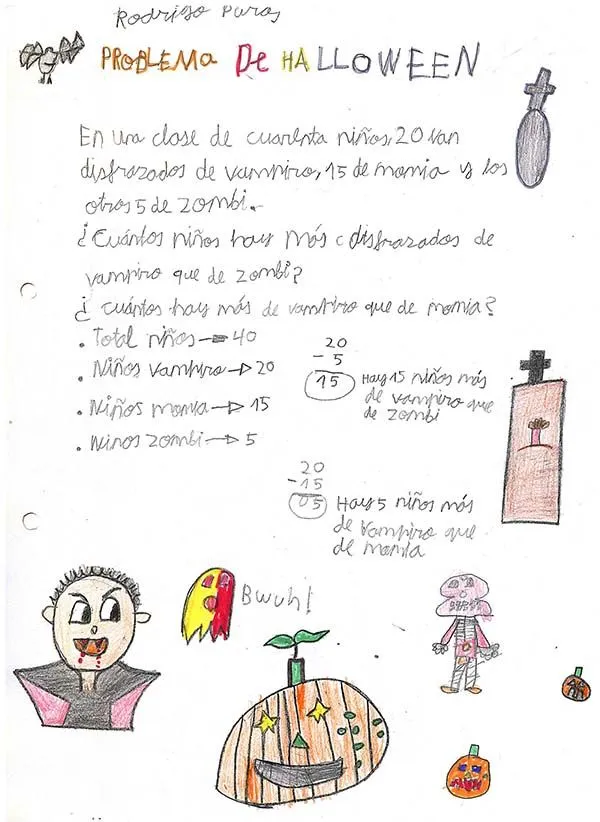 Rodrigo Puras
PROBLEMA De HALLOWEEN
En una clase de cuarenta niños, 20 van
disfrazados de vampiro, 15 de momia y los
otros 5 de zombi.
¿Cuántos niños hay más disfrazados de
vampiro que de zombi?
¿cuántos hay más de vampiro que de momia?
. Total niños → 40
. Niños vampiro → 20
. Niños momia → 15
. Ninos zombi → 5
20
- 5
15 Hay 15 niños más
de vampiro que
de zombi
20
- 15
05 Hay 5 niños más
de vampiro que
de momia
Bwuh!